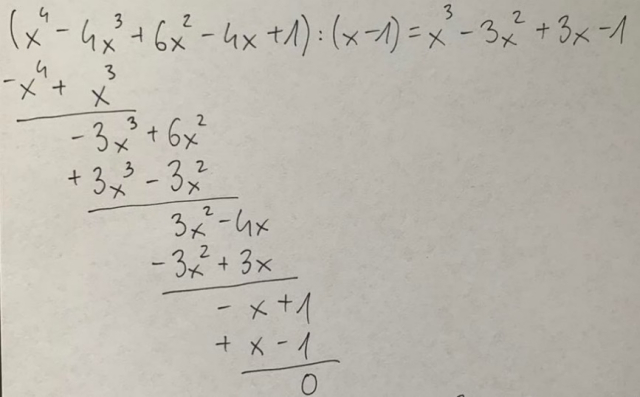 (x⁴ - 4x³ + 6x² - 4x + 1) : (x - 1) = x³ - 3x² + 3x - 1
- x⁴ + x³
- 3x³ + 6x²
+ 3x³ - 3x²
3x² - 4x
- 3x² + 3x
- x + 1
+ x - 1
0